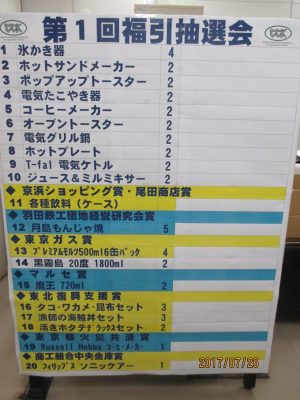 第１回福引抽選会
1 氷かき器 4
2 ホットサンドメーカー 2
3 ポップアップトースター 2
4 電気たこやき器 2
5 コーヒーメーカー 2
6 オーブントースター 2
7 電気グリル鍋 2
8 ホットプレート 2
9 T-fal 電気ケトル 2
10 ジュース＆ミルミキサー 2
◆ 京浜ショッピング賞・尾田商店賞
11 各種飲料（ケース）
◆ 羽田鉄工団地経営研究会賞
12 月島もんじゃ焼 5
◆ 東京ガス賞
13 プレミアムモルツ500ml6缶パック 4
14 黒霧島 20度 1800ml 2
◆ マルセ賞
15 魔王 720ml 2
◆ 東北復興支援賞
16 タコ・ワカメ・昆布セット 3
17 漁師の海賊丼セット 3
18 活きホタテデラックスセット 2
◆ 東京都火災共済賞
19 Russell Hobbs コーヒーメーカー 1
◆ 商工組合中央金庫賞
20 フィリップス ソニッケアー 1
2017/07/26